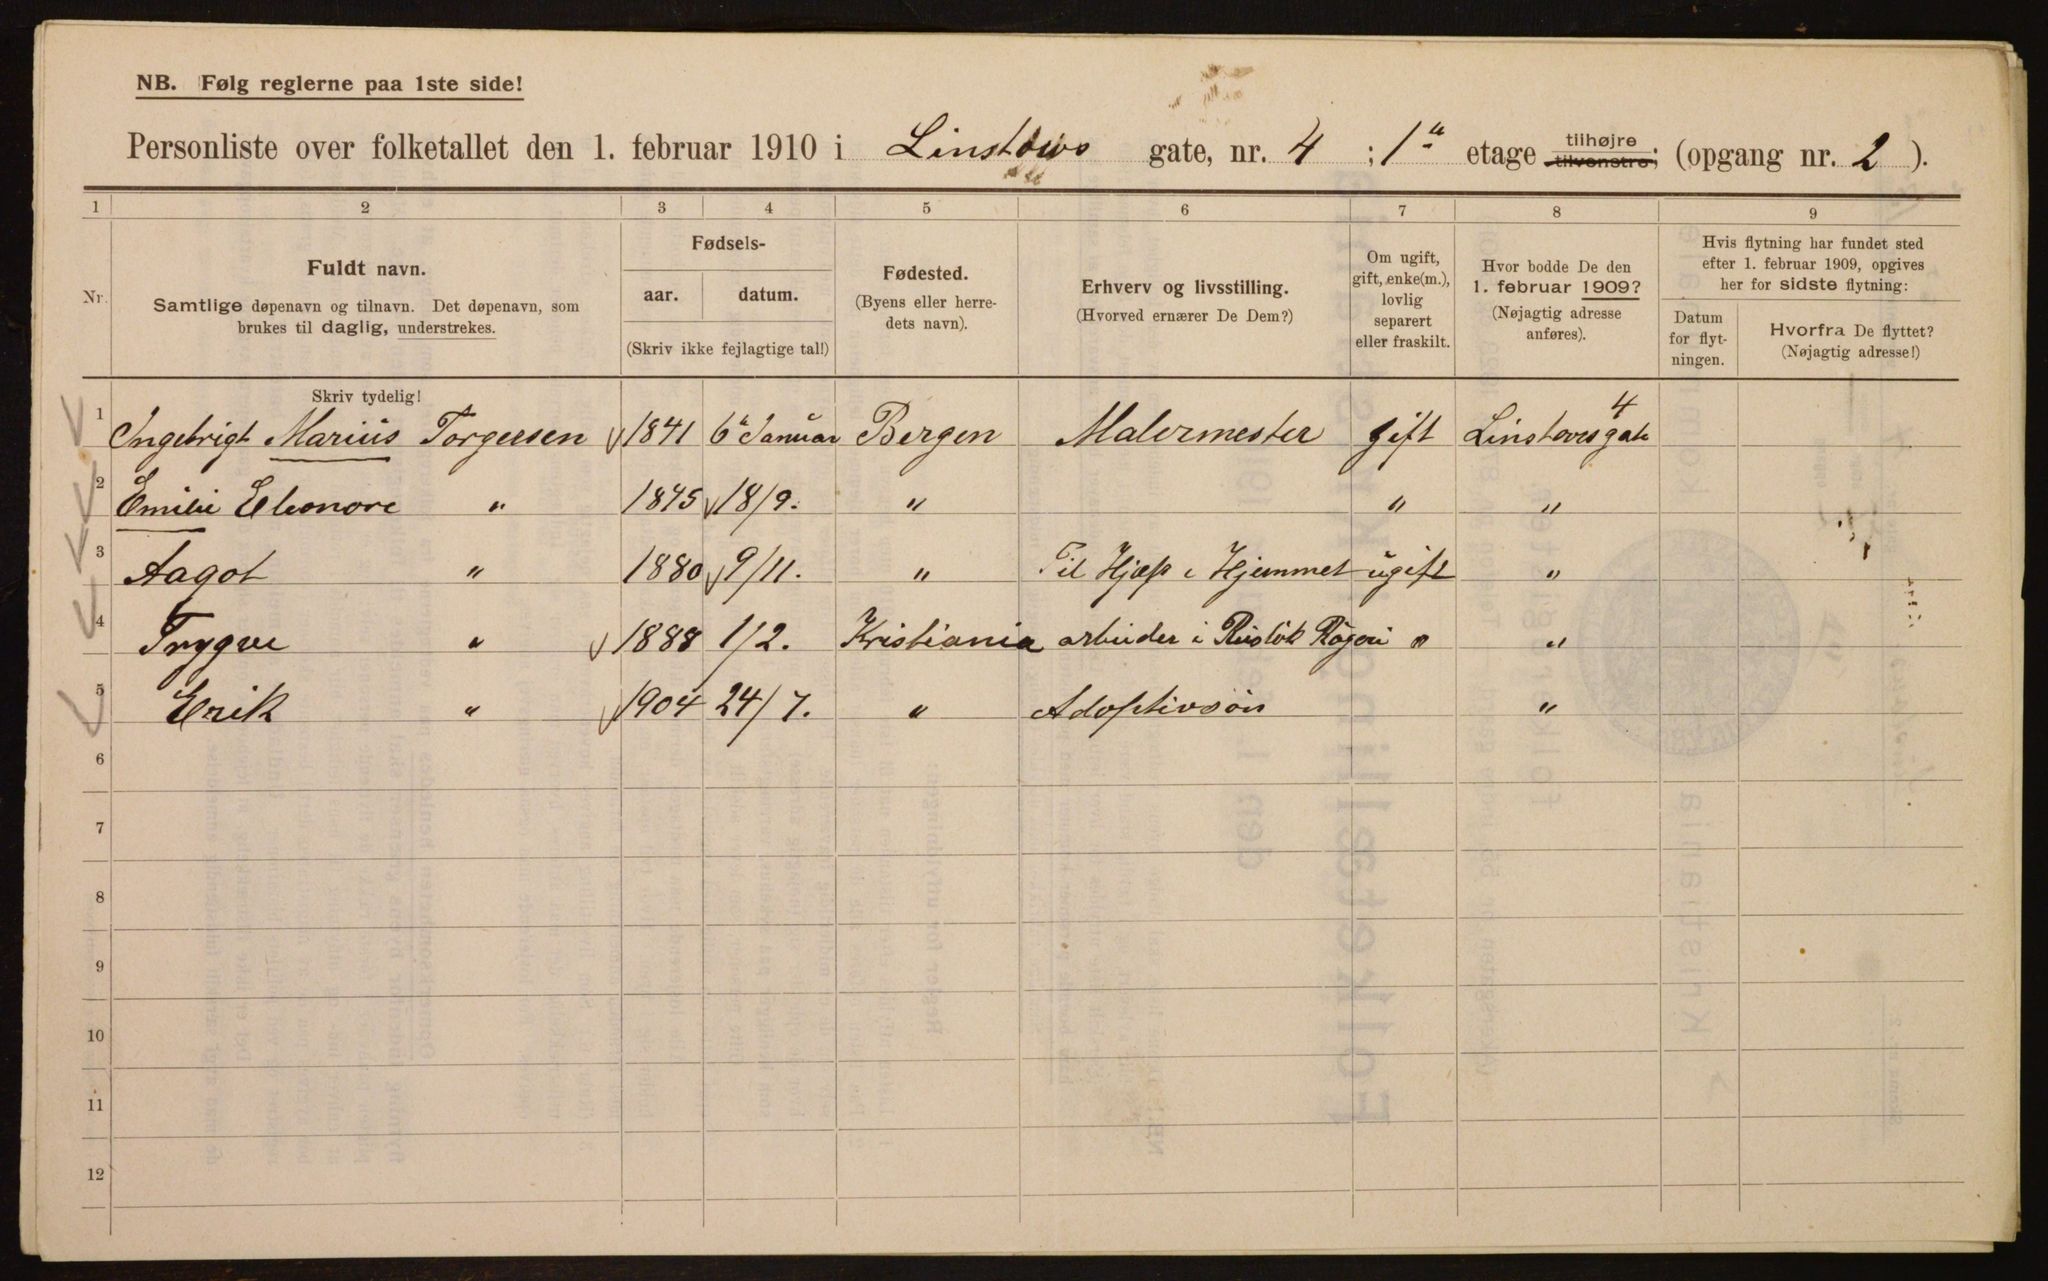 NB. Følg reglerne paa 1ste side!
Personliste over folketallet den 1. februar 1910 i Linstows gate, nr. 4 ; 1ª etage tilhøjre tilvenstre; (opgang nr. 2 ).
1 2 3 4 5 6 7 8 9
Nr.
Fuldt navn.
Samtlige døpenavn og tilnavn. Det døpenavn, som
brukes til daglig, understrekes.
Fødsels-
aar. datum.
(Skriv ikke fejlagtige tal!)
Fødested.
(Byens eller herre-
dets navn).
Erhverv og livsstilling.
(Hvorved ernærer De Dem?)
Om ugift,
gift, enke(m.),
lovlig
separert
eller fraskilt.
Hvor bodde De den
1. februar 1909?
(Nøjagtig adresse
anføres).
Hvis flytning har fundet sted
efter 1. februar 1909, opgives
her for sidste flytning:
Datum
for flyt-
ningen.
Hvorfra De flyttet?
(Nøjagtig adresse!)
Skriv tydelig!
1 Ingebrigt Marius Torgersen 1841 6 Januar Bergen Malermester gift Linstowsgate 4
2 Emilie Eleonore " 1845 18/9. " " "
3 Aagot " 1880 9/11. " Til Hjælp i Hjemmet ugift "
4 Trygve " 1888 1/2. Kristiania arbeider i Røgeri " "
5 Erik " 1904 24/7. " Adoptivsøn "
6
7
8
9
10
11
12